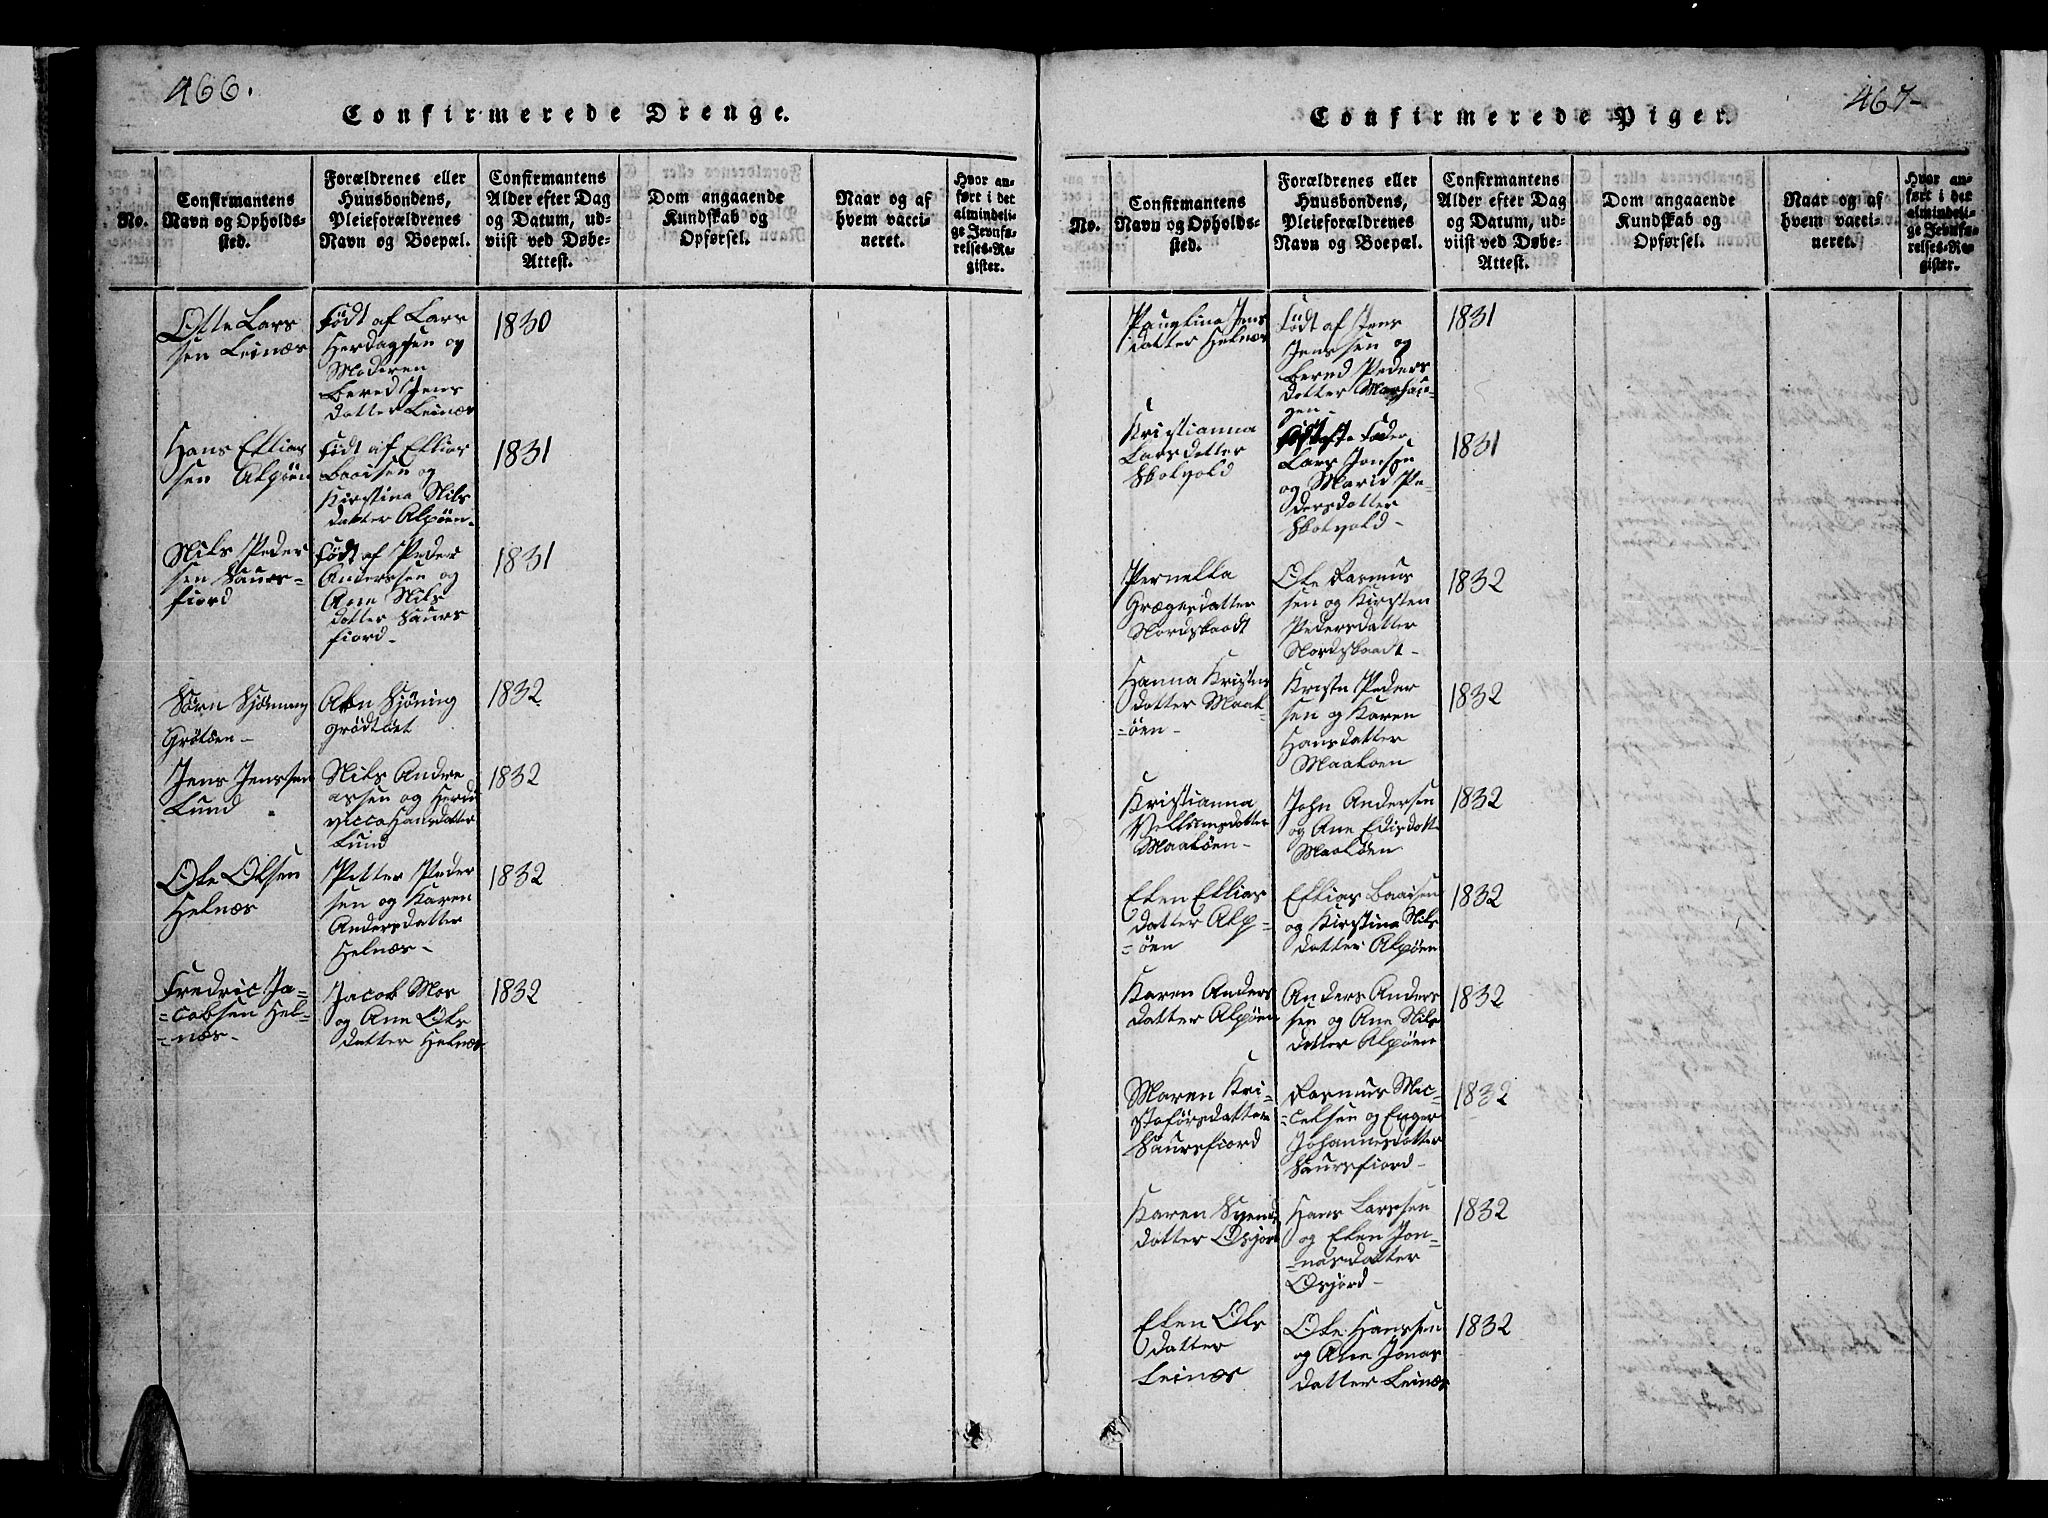 466.
Confirmerede Drenge.
No.
Confirmantens
Navn og Opholds-
sted.
Forældrenes eller
Huusbondens,
Pleieforældrenes
Navn og Boepæl.
Confirmantens
Alder efter Dag
og Datum, ud-
viist ved Døbe-
Attest.
Dom angaaende
Kundskab og
Opførsel.
Naar og af
hvem vacci-
neret.
Hvor an-
ført i det
almindeli-
ge Jevnfø-
relses-Re-
gister.
Otte Lars
sen Leinæs
Født af Lars
Herdagsen og
Moderen
Bered Jens
datter Leinæs
1830
Hans Ellias
sen Alpøen
Født af Ellias
Baaisen og
Kirstina Nils
datter Alpøen.
1831
Nils Peder
sen Saurs-
fiord
Født af Peder
Anderssen og
Ane Nils
datter Saurs
fiord-
1831
Sørn Sjöning
Grötöen-
Sjöning
grödtöet
1832
Jens Jenssen
Lund
Nils Andre
assen og
Hansdatter
Lund
1832
Ole Olsen
Helnæs
Petter Peder
sen og Karen
Andersdatter
Helnæs-
1832
Fredric Ja-
=cobsen Hel-
=næs-
Jacob Mos
og Ane Ols
datter Helnæs
1832
467-
Confirmerede Piger.
No.
Confirmantens
Navn og Opholds-
sted.
Forældrenes eller
Huusbondens,
Pleieforældrenes
Navn og Boepæl.
Confirmantens
Alder efter Dag
og Datum, ud-
viist ved Døbe-
Attest.
Dom angaaende
Kundskab og
Opførsel.
Naar og af
hvem vacci-
neret.
Hvor an-
ført i det
almindeli-
ge Jevnfø-
relses-Re-
gister.
Paulina Jens
datter Helnæs
Født af Jens
Jenssen og
Bered Peders
datter Marhau-
gen-
1831
Kristianna
Larsdatter
Skolvold
Lars Jonsen
og Marid Pe-
dersdatter
Skolvold-
1831
Pernella
Grægersdatter
Nordskaadt
Ole Rasmus
sen og Kirsten
Pedersdatter
Nordskaadt-
1832
Hanna Kristens
datter Maak-
=öen-
Kristen Peder
sen og Karen
Hansdatter
Maaköen
1832
Kristianna
Vellumsdatter
Maaköen-
John Andersen
og Ane Edisdatt
Maaköen
1832
Elen Ellias
datter Alp-
=öen
Ellias Baaisen
og Kirstina Nils
datter Alpöen
1832
Karen Anders
datter Alpöen
Anders Anders
sen og Ane Nils
datter Alpöen
1832
Maren Kri-
stoförsdatter
Saursfiord
Rasmus Mic-
=elsen og Enger
Johannesdatter
Saursfiord-
1832
Karen Svends
datter Osjord
Hans Larssen
og Elen Jon-
=nasdatter
Osjord-
1832
Elen Ols
datter
Leinæs
Ole Hanssen
og Ane Jonas
datter Leinæs
1832